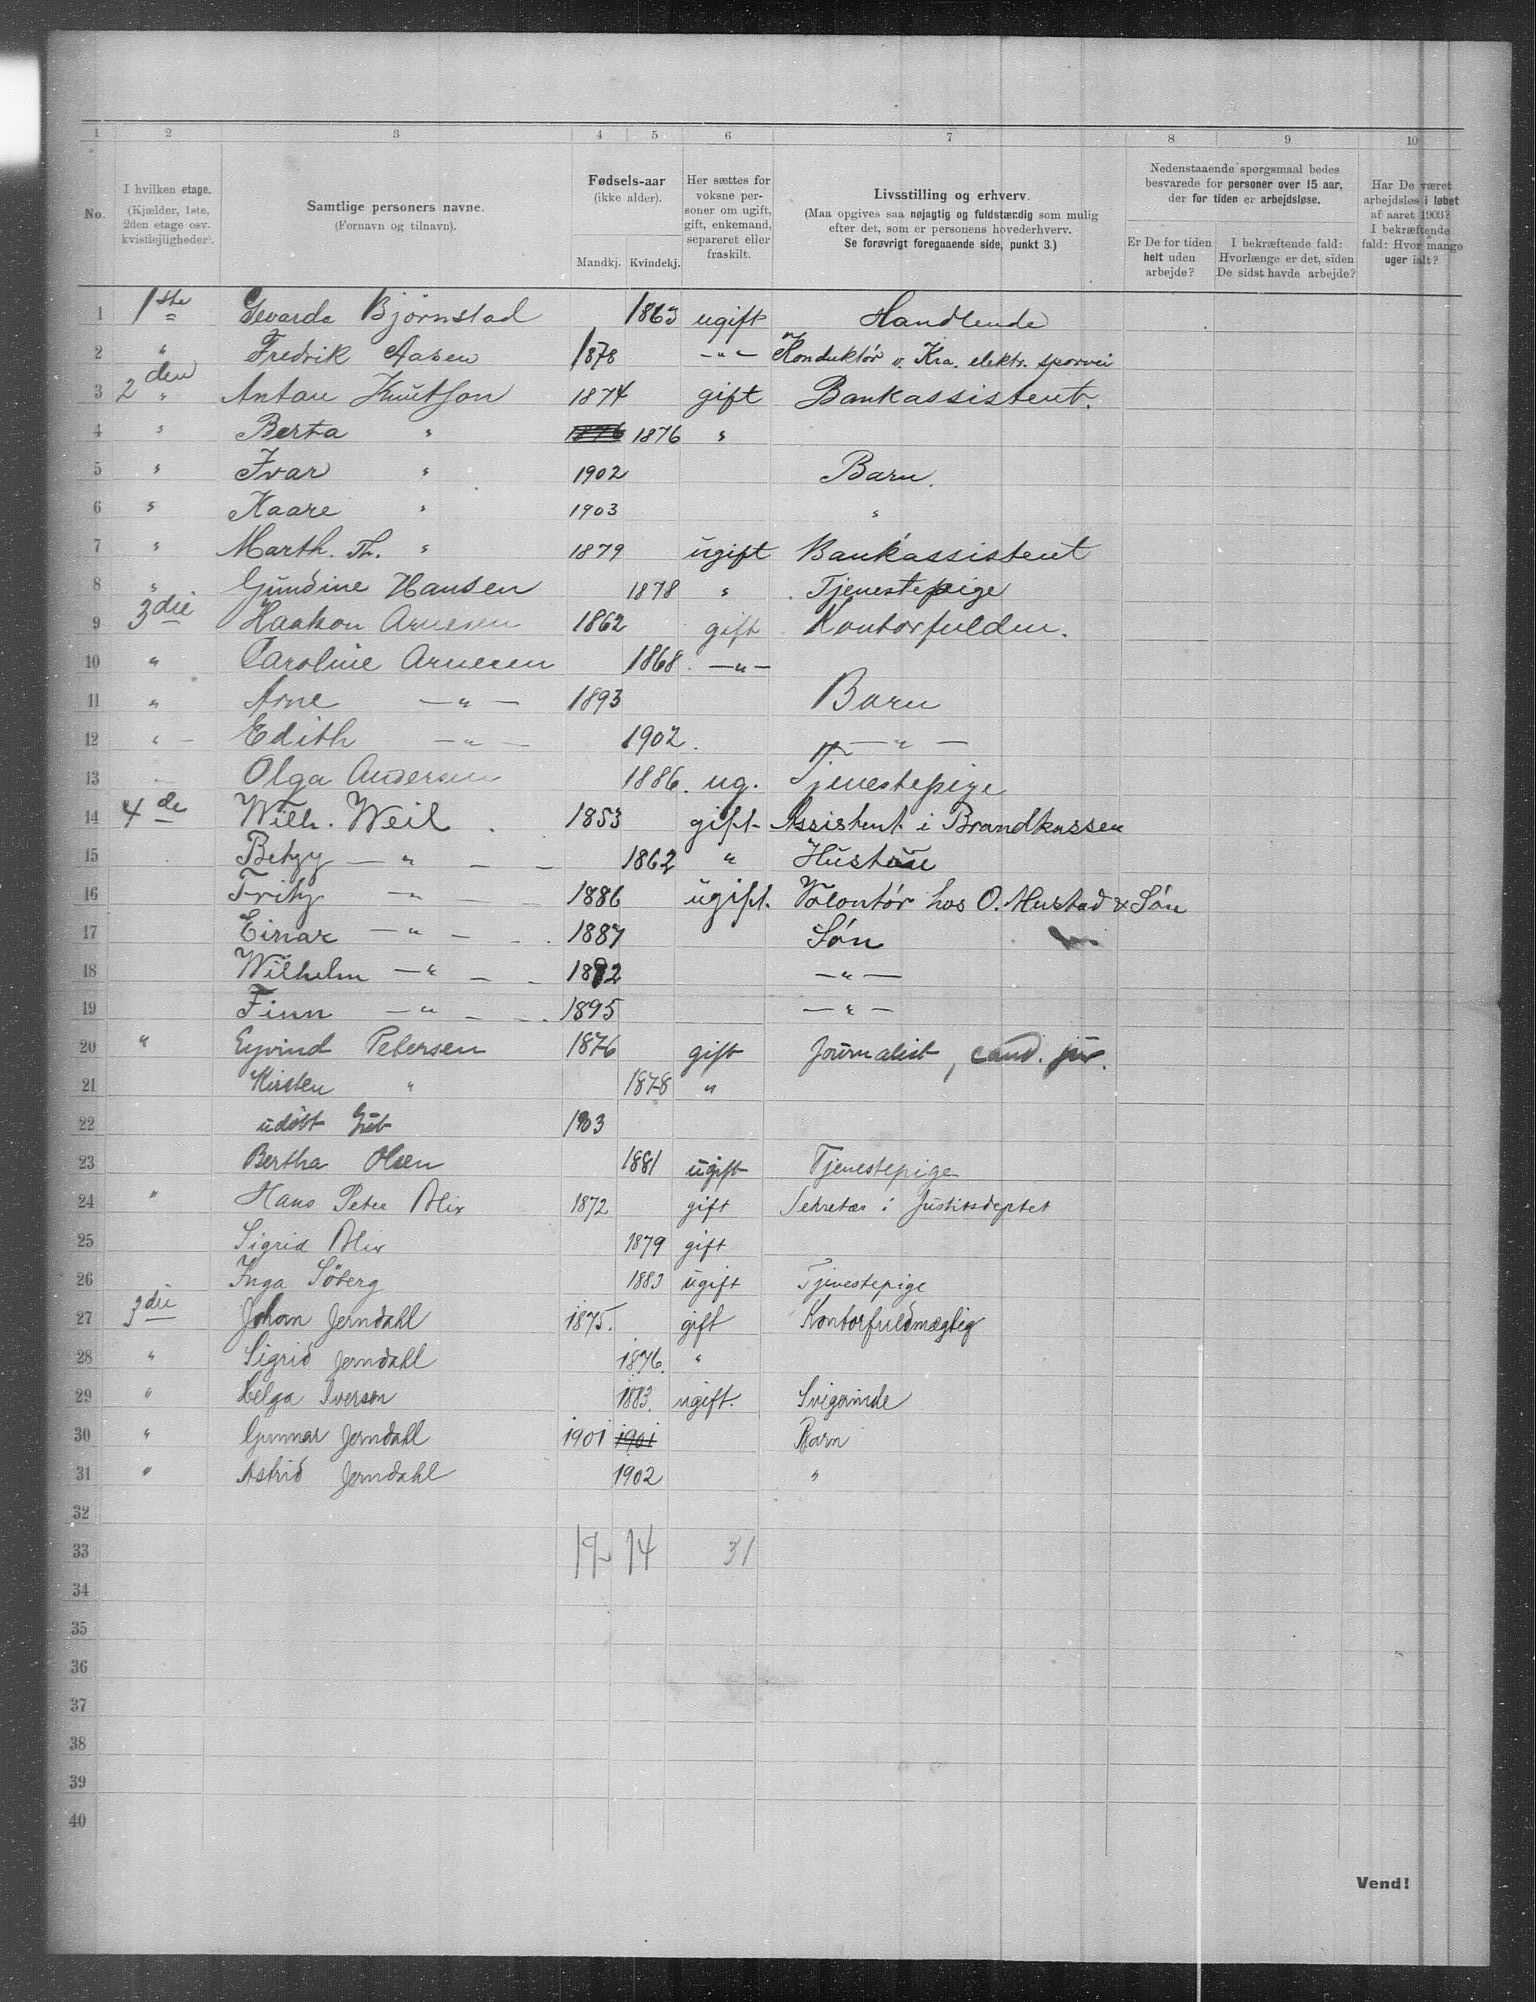 1 2 3 4 5 6 7 8 9 10
No.
I hvilken etage.
(Kjælder, 1ste,
2den etage osv.
kvistlejligheder).
Samtlige personers navne.
(Fornavn og tilnavn).
Fødsels-aar
(ikke alder).
Mandkj. Kvindekj.
Her sættes for
voksne per-
soner om ugift,
gift, enkemand,
separeret eller
fraskilt.
Livsstilling og erhverv.
(Maa opgives saa nøjagtig og fuldstændig som mulig
efter det, som er personens hovederhverv.
Se forøvrigt foregaaende side, punkt 3.)
Nedenstaaende spørgsmaal bedes
besvarede for personer over 15 aar,
der for tiden er arbejdsløse.
Er De for tiden
helt uden
arbejde?
I bekræftende fald:
Hvorlænge er det, siden
De sidst havde arbejde?
Har De været
arbejdsløs i løbet
af aaret 1903?
I bekræftende
fald: Hvor mange
uger ialt?
1 1ste Gevarda Bjørnstad 1863 ugift Handlende
2 " Fredrik Aasen 1878 —"— Konduktør v. Kra. elektr. sporvei
3 2den " Anton Knutson 1874 gift Bankassistent.
4 " Berta " 1876 1876 "
5 " Ivar " 1902 Barn.
6 " Kaare " 1903 "
7 " Marth. Th. " 1879 ugift Bankassistent
8 " Gundine Hansen 1878 " Tjenestepige
9 3die Haakon Arnesen 1862 gift Kontorfuldm.
10 " Caroline Arnesen 1868. —"—
11 " Arne —"— 1893 Barn
12 " — Edith —"— 1902. —"—
13 — Olga Andersen 1886. ug. Tjenestepige
14 4de Wilh. Weil. 1853 gift Assistent i Brandkassen
15 Betzy —"— — — 1862 " Hustrue
16 Fritz —"— 1886 ugift. Volontør hos O. Mustad & Søn
17 Einar —"— 1887 Søn
18 Wilhelm —"— 1892 —"—
19 Finn —"— 1895 —"—
20 " Eyvind Petersen 1876 gift Journalist, cand. jur.
21 Kirsten " 1878 "
22 udøbt Gut 1903
23 Bertha Olsen 1881 ugift Tjenestepige
24 " Hans Peter Blix 1872 gift Sekretær i Justitsdeptet
25 Sigrid Blix 1879 gift
26 Inga Söberg 1883 ugift Tjenestepige
27 3die Johan Jerndahl 1875. gift Kontorfuldmægtig
28 " Sigrid Jerndahl 1876. "
29 " Helga Iverson 1883. ugift. Svigerinde
30 " Gunnar Jerndahl 1901 1901 Barn
31 " Astrid Jerndahl 1902 "
32
33 17 14 31
34
35
36
37
38
39
40
Vend!